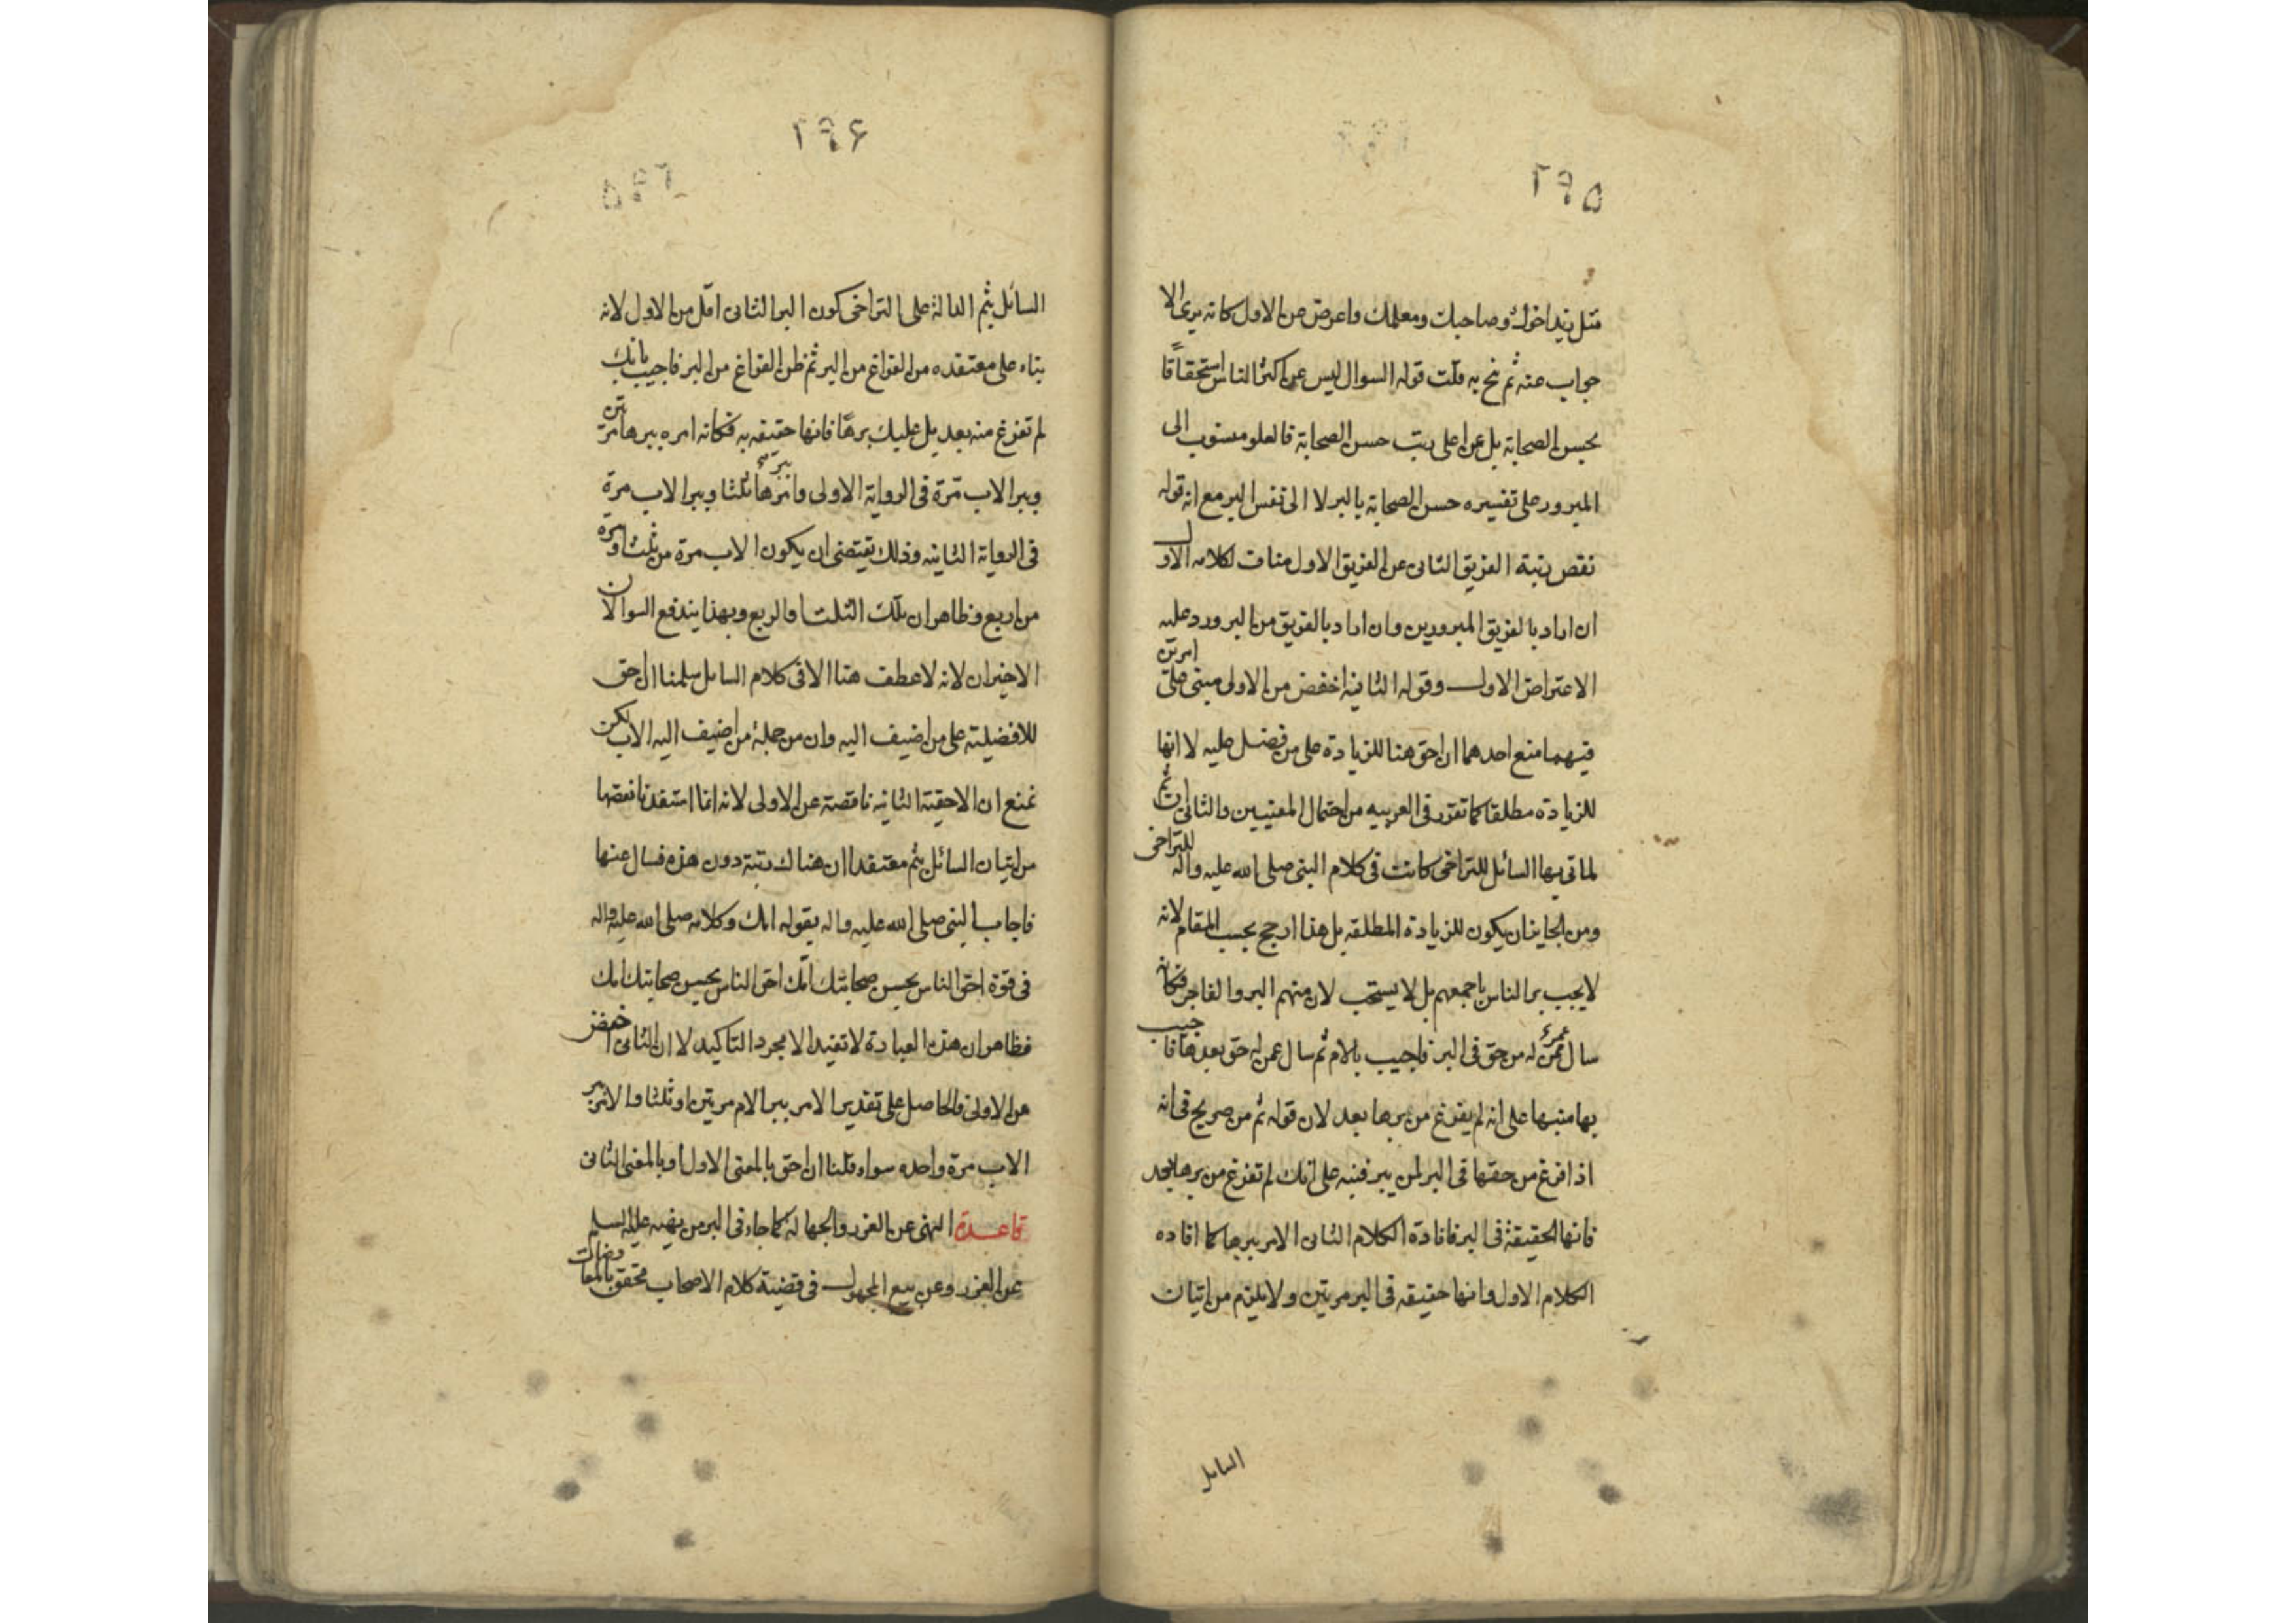 ۲۹۵
مثل زيد اخوك وصاحبك ومعلمك واعرض عن الاول كانه يرى الا
جواب عنه ثم نحج به قلت قوله السوال ليس عن اكثر الناس استحقاقا
بحسن الصحابة بل عن اعلى رتب حسن الصحابة فالعلو منسوب الى
المبرور على تفسيره حسن الصحابة بالبر لا الى نفس البر مع انه قوله
نقص رتبة الفريق الثانى عن الفريق الاول مناف لكلامه الاول
ان اراد بالفريق المبرورين وان اراد بالفريق من البر ورد عليه
الاعتراض الاول وقوله الثانية اخفض من الاولى مبنى على امرين
فيهما منع احدهما ان احق هنا للزيادة على من فضل عليه لا انها
للزيادة مطلقا كما تقرر فى العربيه من احتمال المعنيين والثانى ان ثم
لما اتى بها السائل للتراخى كانت فى كلام النبى صلى الله عليه واله للتراخى
ومن الجايز ان يكون للزيادة المطلقه بل هذا ارجح بحسب المقام لانه
لا يجب بر الناس باجمعهم بل لا يستحب لان منهم البر والفاجر فكانه
سال عمن له من حق فى البر فاجيب بالام ثم سال عمن له حق بعدها فاجيب
بها منبها على انه لم يفرغ من برها بعد لان قوله ثم من صريح فى انه
اذا فرغ من حقها فى البر لمن يبر فنبه على انك لم تفرغ من برها بعد
فانها الحقيقة فى البر فافادة الكلام الثانى الامر ببرها كما افاده
الكلام الاول وانها حقيقه فى البر مرتين ولا يلزم من اتيان
السايل
۲۹۶
السائل بثم الدالة على التراخى كون البر الثانى اقل من الاول لانه
بناء على معتقده من الفراغ من البر ثم ظن الفراغ من البر فاجيب بانك
لم تفرغ منه بعد بل عليك برها فانها حقيقه به فكانه امره ببرها مرتين
وببر الاب مرة فى الرواية الاولى وامر ببرها ثلثا وببر الاب مرة
فى الرواية الثانيه وذلك يقتضى ان يكون الاب مرة من ثلث او مرة
من اربع وظاهر ان تلك الثلث او الربع وبهذا يندفع السوالان
الاخيران لانه لا عطف هنا الا فى كلام السايل سلمنا ان احق
للافضليته على من اضيف اليه وان من جملة من اضيف اليه الاب لكن
نمنع ان الاحقية الثانيه ناقصة عن الاولى لانه انما استفدنا نقصها
من اتيان السائل بثم معتقدا ان هناك رتبة دون هذه فسال عنها
فاجاب النبى صلى الله عليه واله بقوله امك وكلامه صلى الله عليه واله
فى قوة احق الناس بحسن صحابتك امك احق الناس بحسن صحابتك امك
فظاهر ان هذه العبادة لا تفيد الا مجرد التاكيد لا ان الثانى اخفض
من الاولى والحاصل على تقدير الامر ببر الام مرتين او ثلثا والامر ببر
الاب مرة واحده سواء قلنا ان احق بالمعنى الاول او بالمعنى الثانى
قاعدة النهى عن الغرر والجهالة كما جاء فى البر من نهيه عليه السلم
عن الغرر وعن بيع المجهول فى قضية كلام الاصحاب متحقق بالمعاوضات